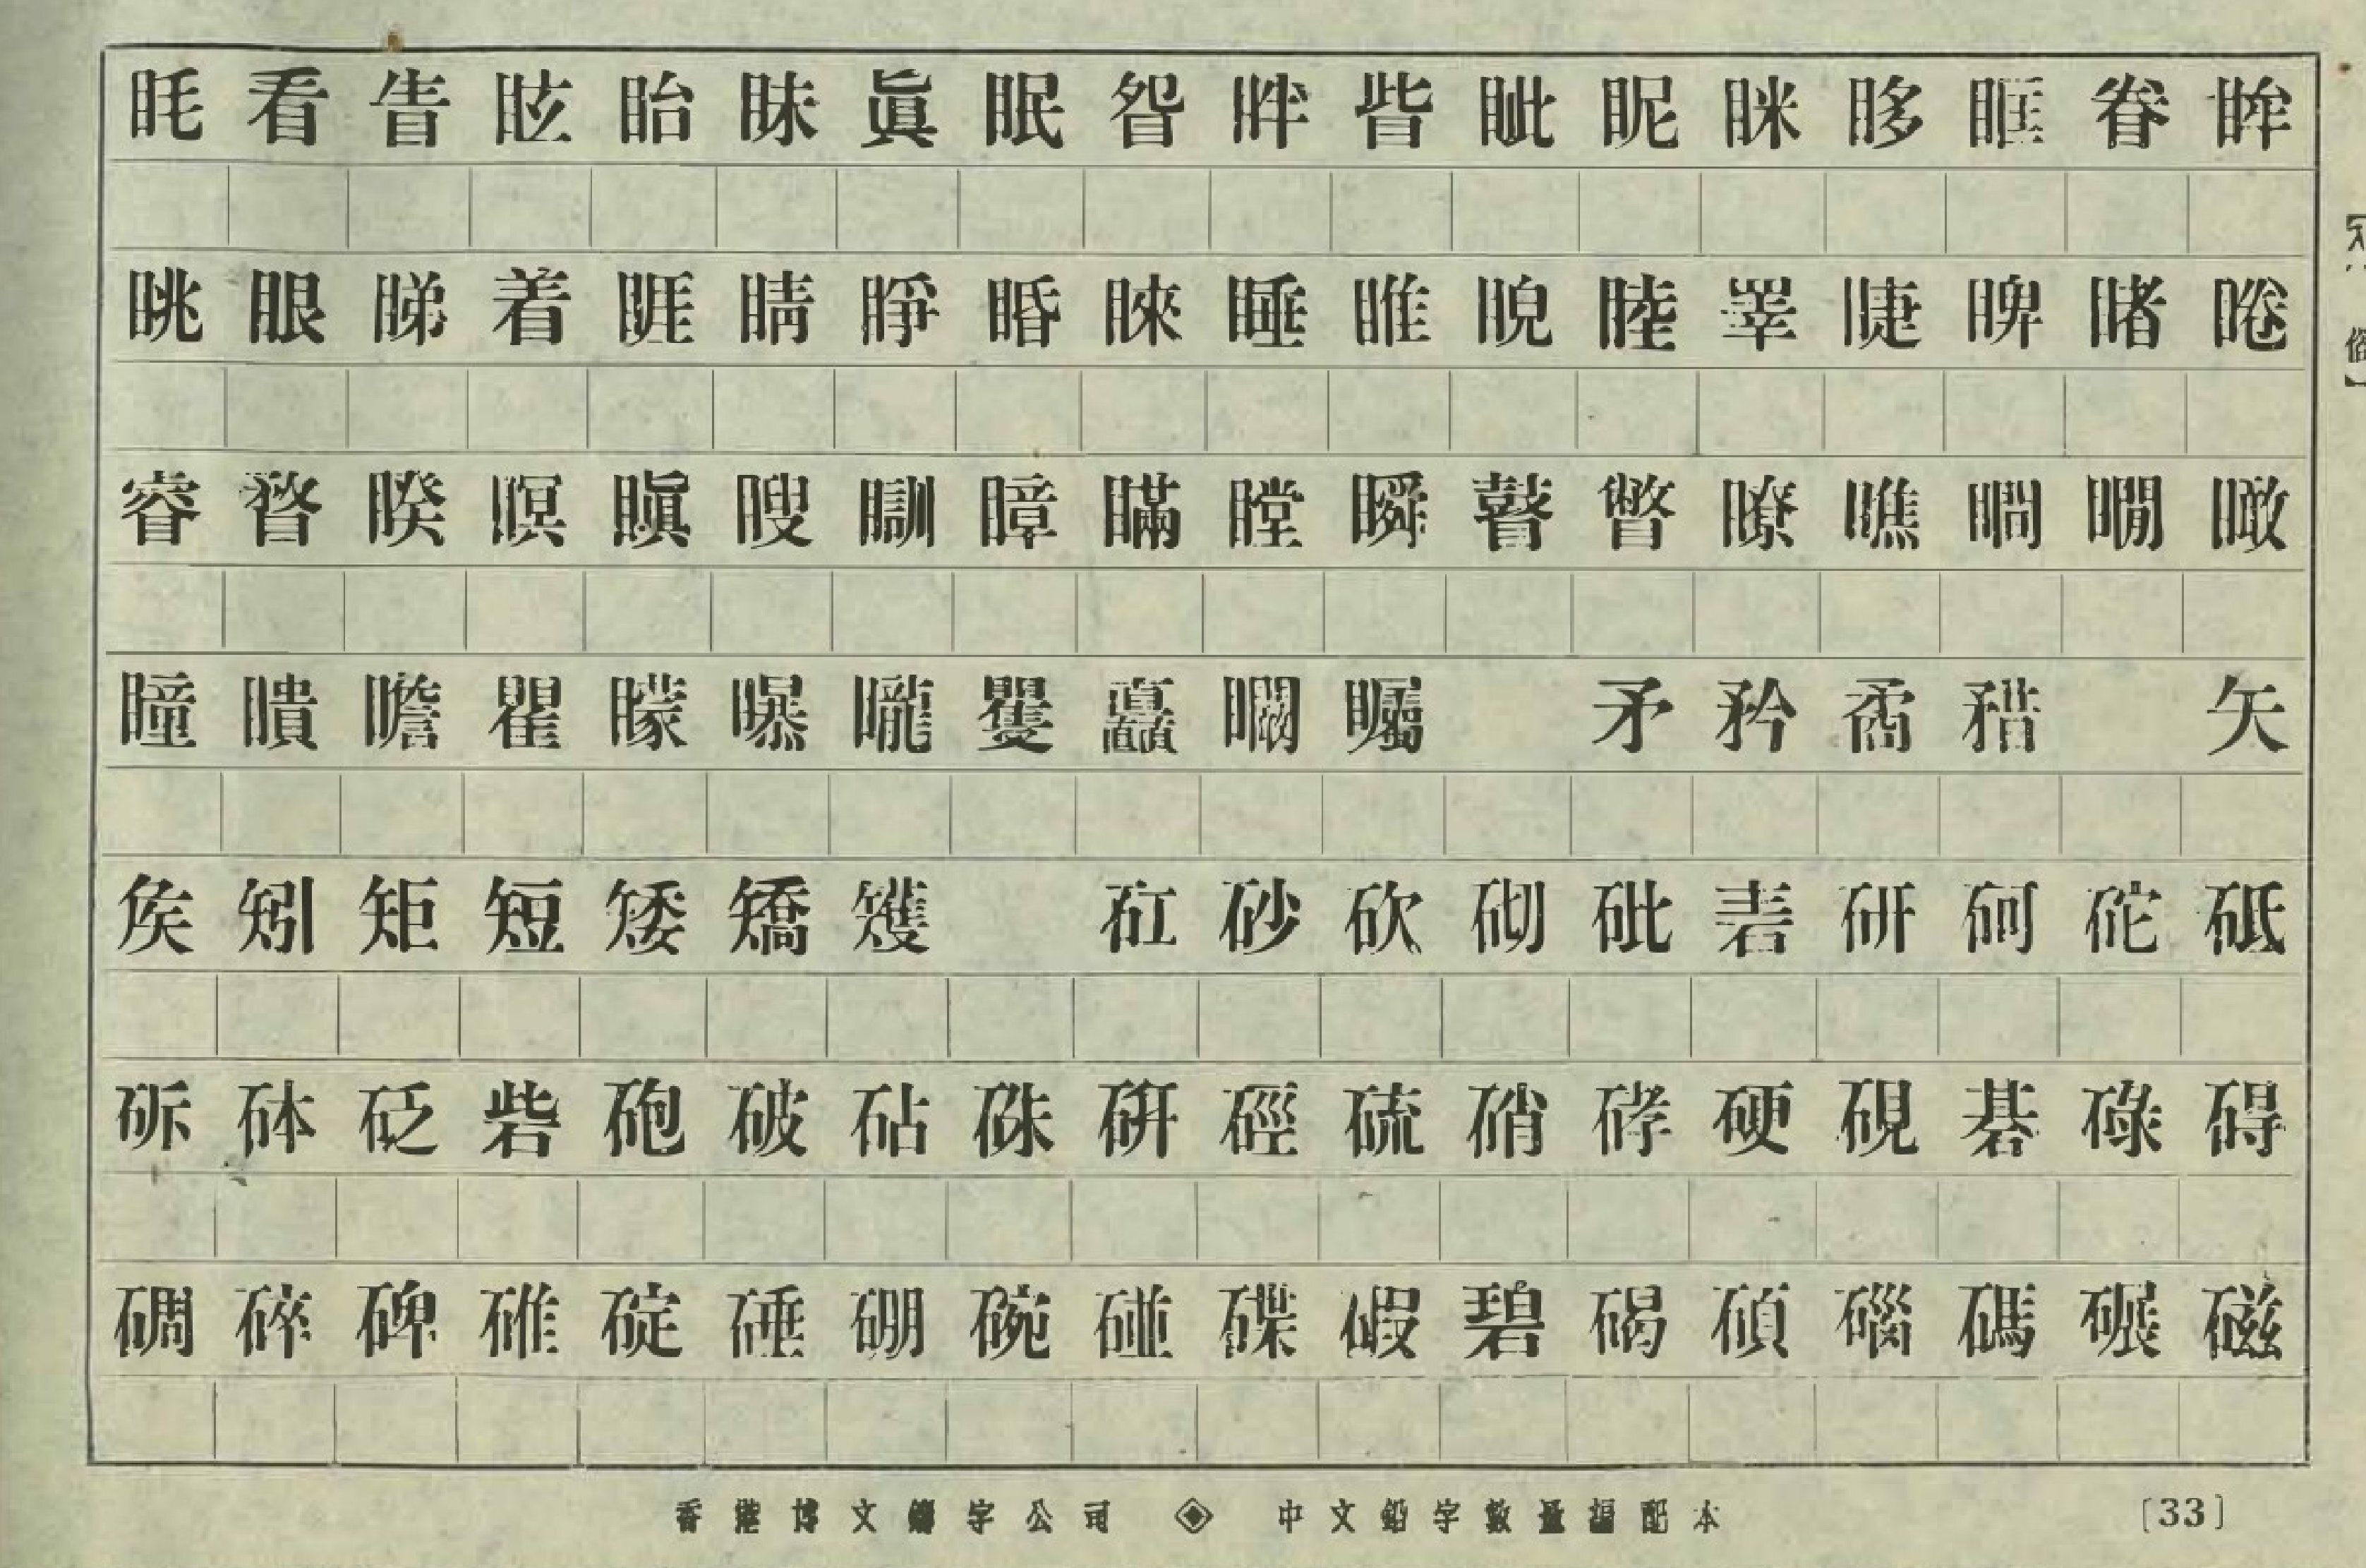 眊看眚眩眙眛眞眠眢眫眥眦眤眯眵眶眷眸
眺眼睇着睚睛睜睧睞睡睢睨睦睪睫睥睹睠
睿瞀睽瞑瞋瞍瞓瞕瞞瞠瞬瞽瞥瞭瞧瞷瞯瞰
瞳瞶瞻瞿矇曝矓矍矗矙矚 矛矜矞矠 矢
矦矧矩短矮矯矱 矼砂砍砌砒砉研砢砣砥
砳砵砭砦砲破砧硃硏硜硫硝硣硬硯碁碌碍
碉碎碑碓碇硾硼碗碰碟碬碧碣碩碯碼碾磁
香港博文鑄字公司 ◈ 中文鉛字數量編配本 〔33〕